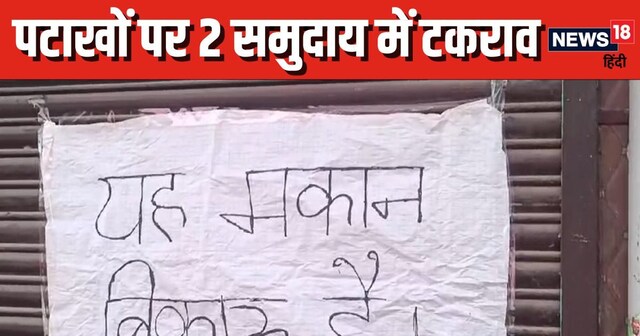 पटाखों पर 2 समुदाय में टकराव
NEWS 18
हिंदी
यह मकान
बिकाऊ है।